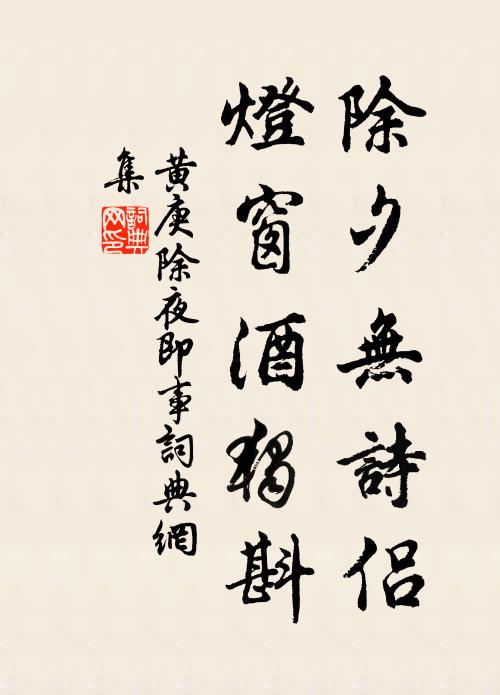 除夕無詩侶
燈窗酒獨斟
黃庚除夜即事詞典網
集
詞典
网印